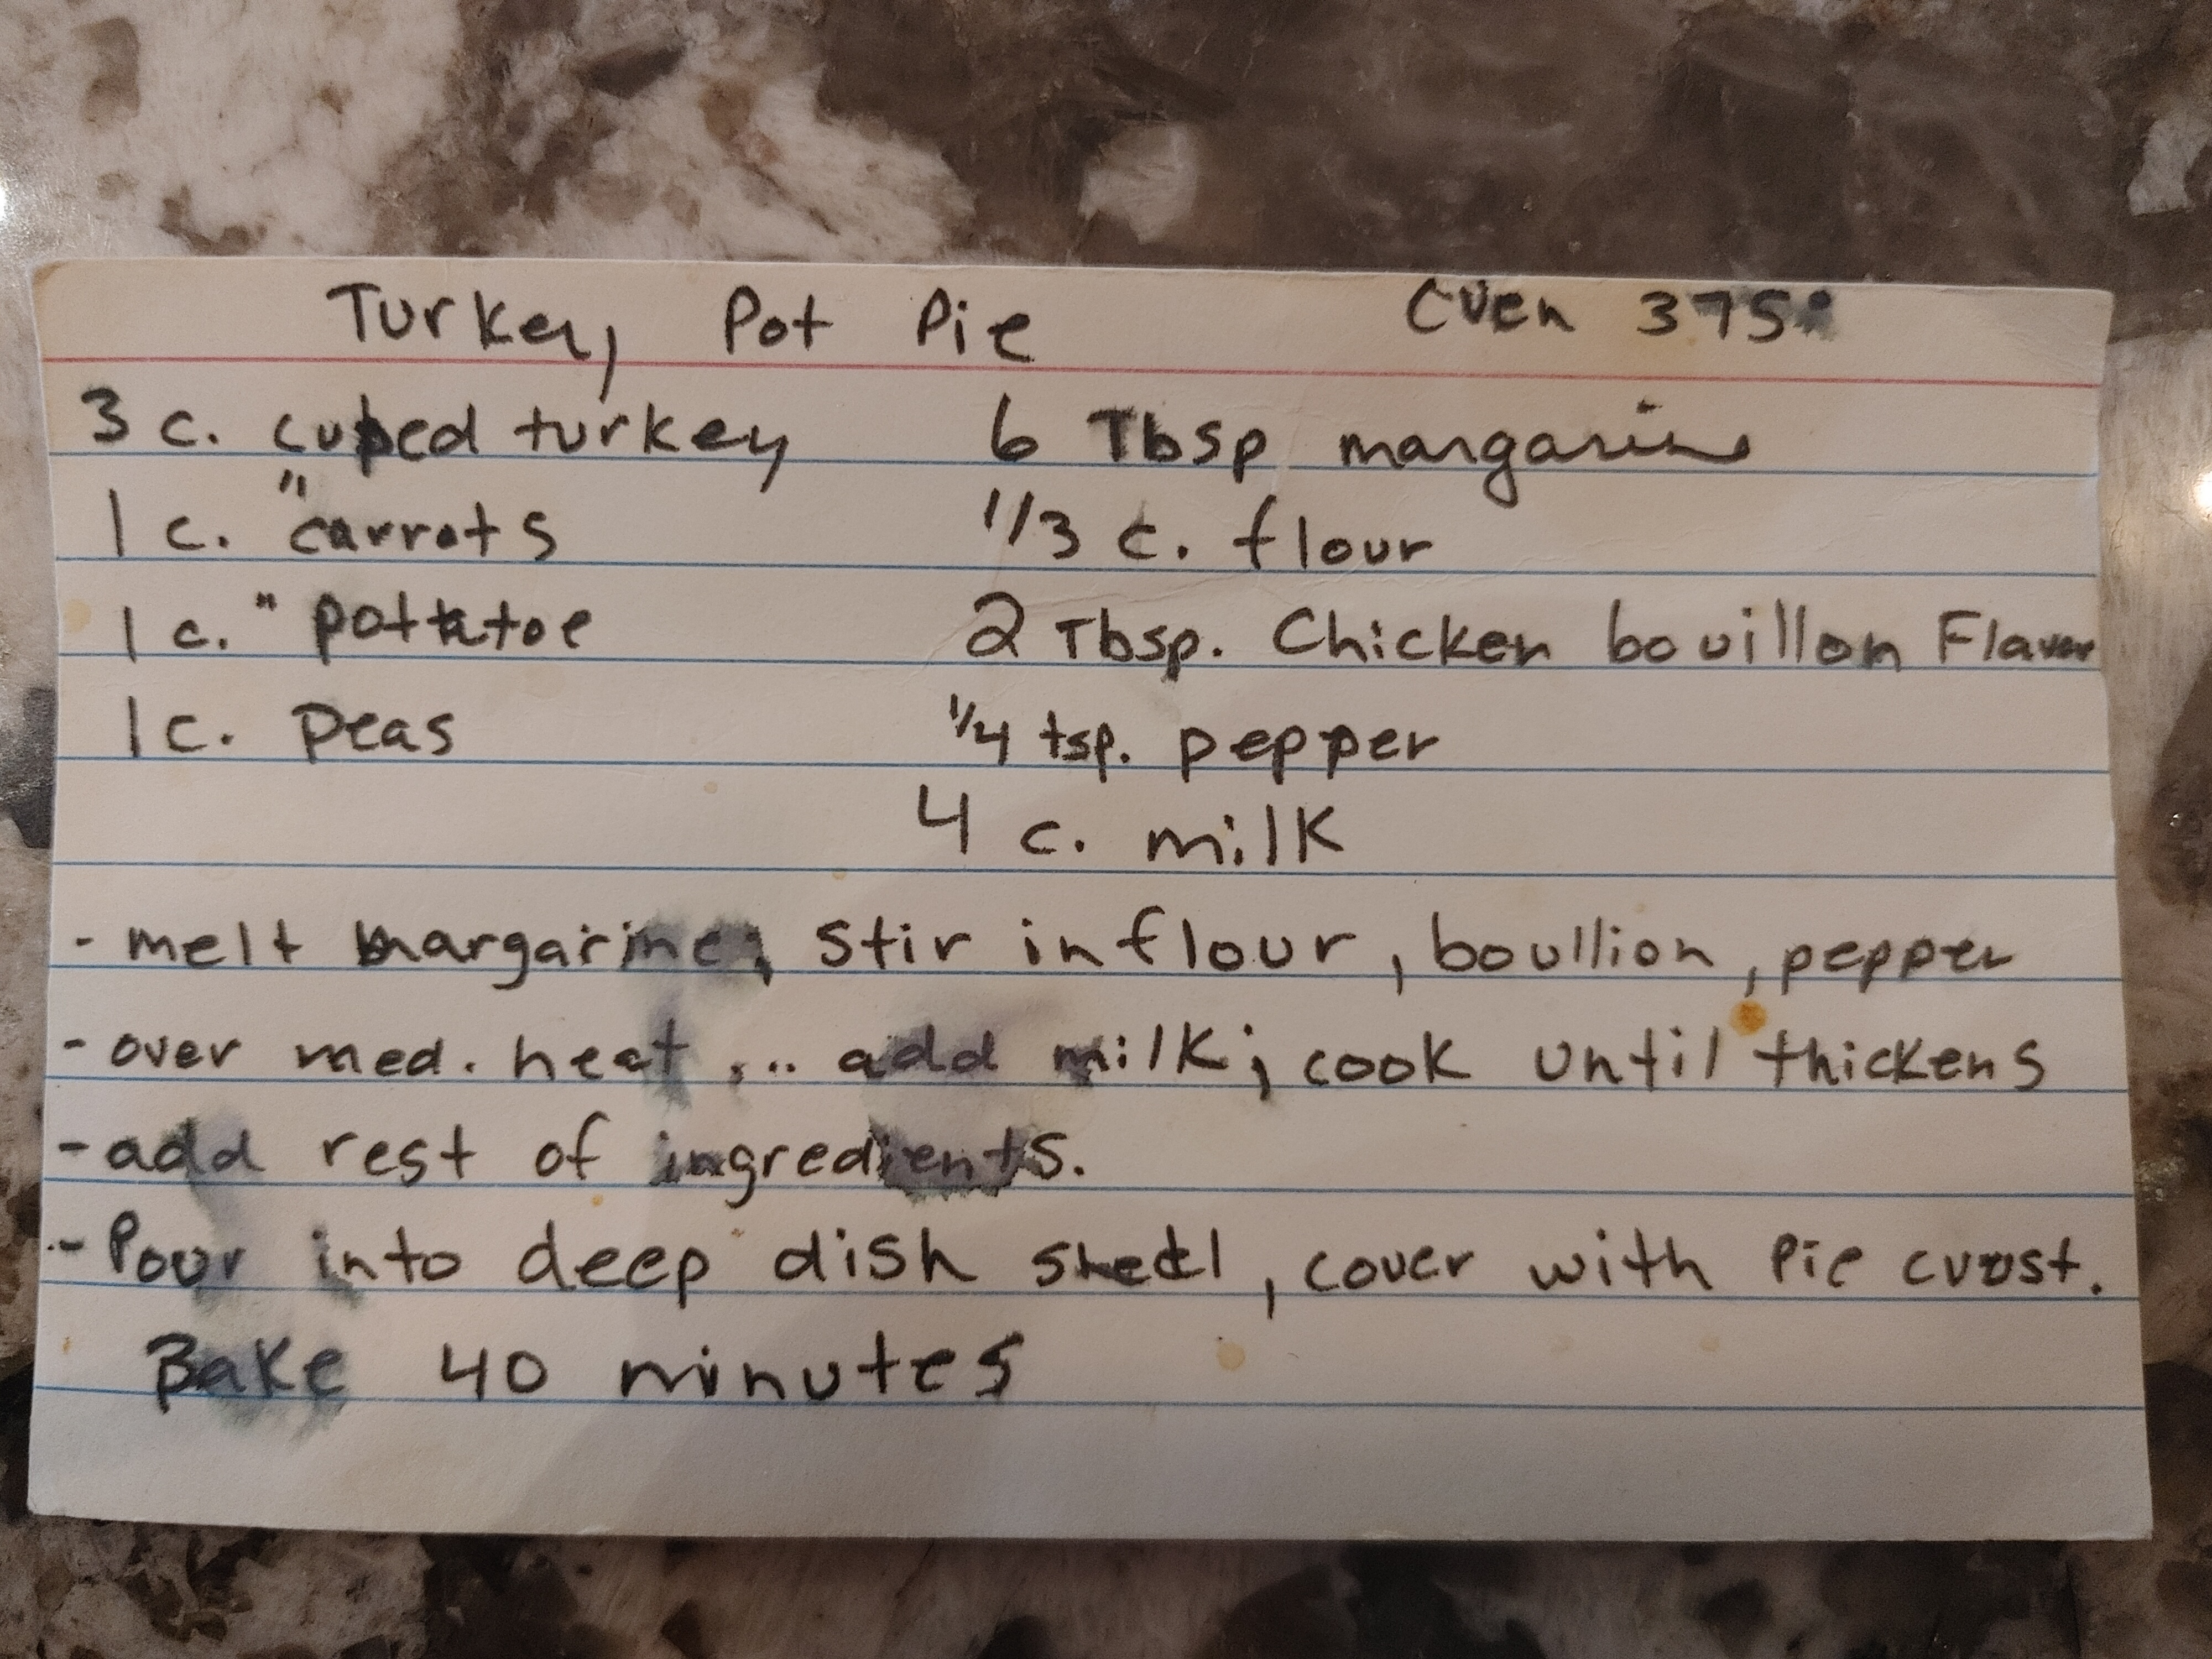 Turkey Pot Pie Oven 375°
3 c. cubed turkey 6 Tbsp margarine
1 c. " carrots 1/3 c. flour
1 c. " pottatoe 2 Tbsp. Chicken bouillon Flavor
1 c. Peas 1/4 tsp. pepper
4 c. milk
- melt margarine; stir in flour, boullion, pepper
- over med. heat ... add milk; cook until thickens
- add rest of ingredients.
- Pour into deep dish shell, cover with Pie crust.
Bake 40 minutes